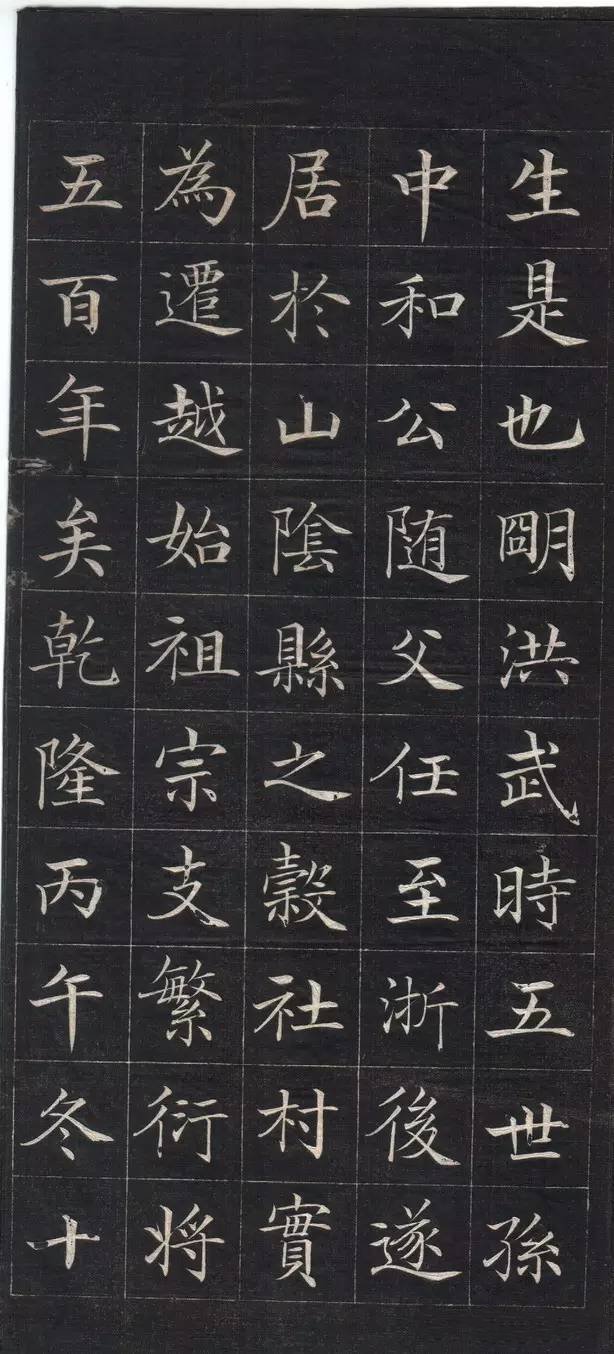 生是也明洪武時五世孫
中和公随父任至浙後遂
居於山陰縣之糓社村實
為遷越始祖宗支繁衍将
五百年矣乾隆丙午冬十